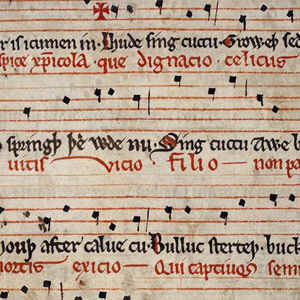 er is icumen in. Lhude sing cuccu. Groweþ sed
spice xp̄icola. que dignacio celicus
springþ þe wde nu. Sing cuccu Awe b
uitis vicio filio non pa
louþ after calue cu. Bulluc sterteþ. buck
mortis exicio Qui captiuos semi